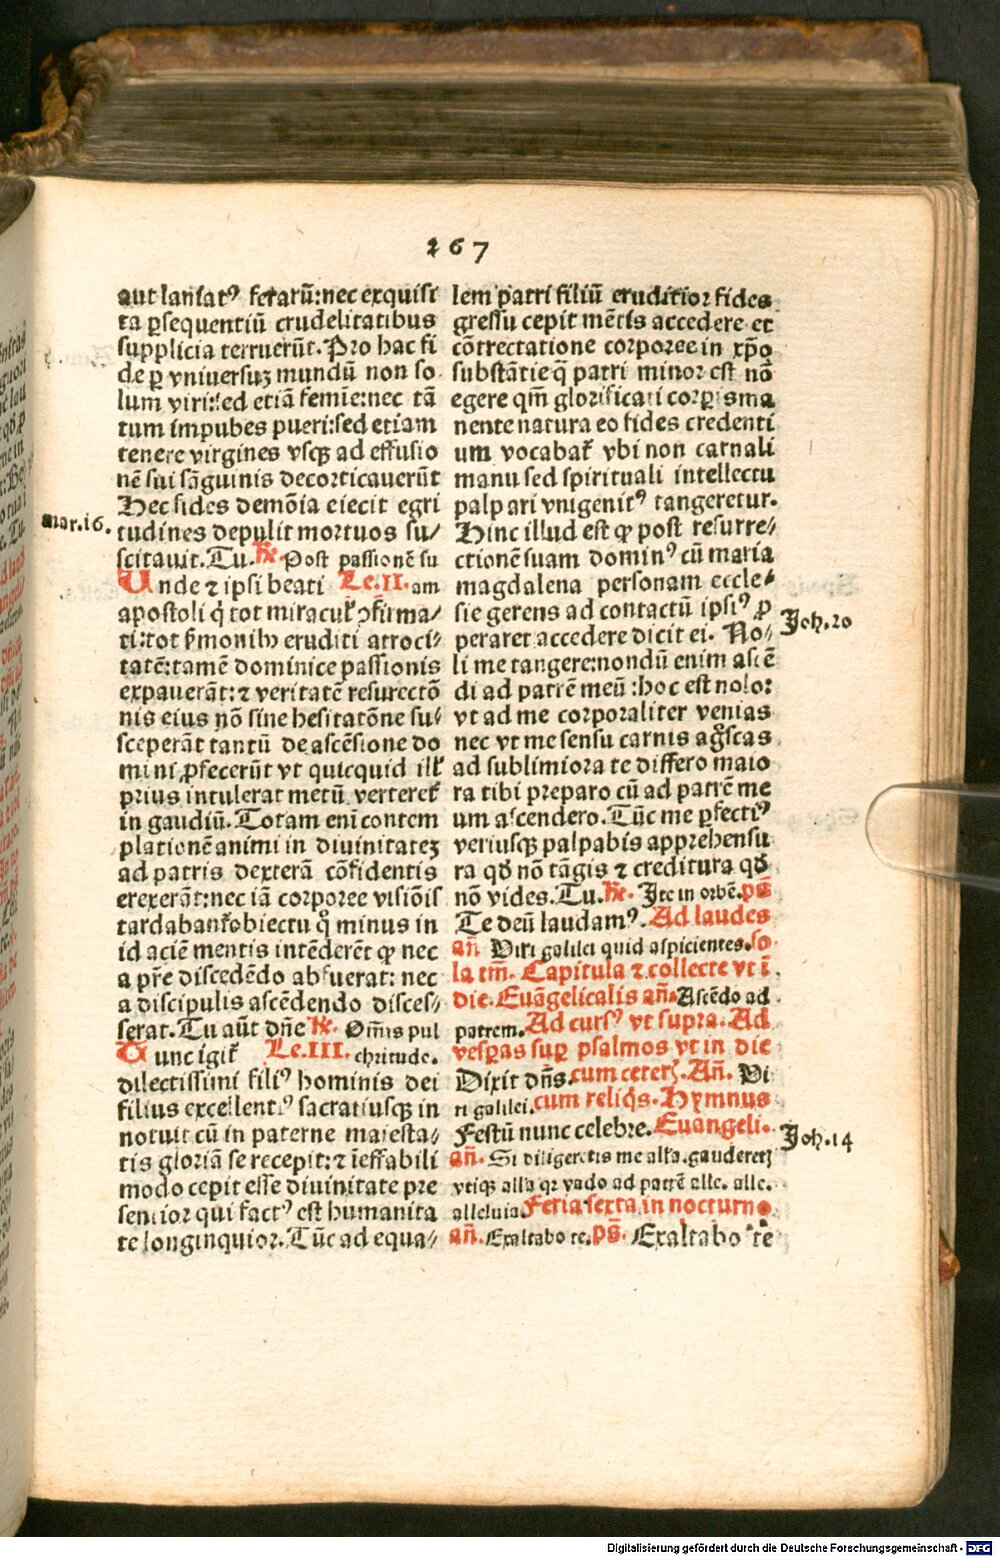 267
aut laniatꝰ ferarū:nec exquisi
ta ꝑsequentiū crudelitatibus
supplicia terruerūt. Pro hac fi
de ꝑ vniuersuꝫ mundū non so
lum viri:sed etiā femie:nec tā
tum impubes pueri:sed etiam
tenere virgines vsqꝫ ad effusio
nē sui sāguinis decorticauerūt
Hec fides demōia eiecit egri
mar.16.
tudines depulit mortuos su/
scitauit. Tu. R̄. Post passionē su
Unde ⁊ ipsi beati Le.II. am
apostoli q̇ tot miracul̕ ꝯfirma/
ti:tot ẜmonibꝫ eruditi atroci/
tatē:tamē dominice passionis
expauerāt:⁊ veritatē resurectō
nis eius nō sine hesitatōne su/
sceperāt tantū de ascēsione do
mini ꝓfecerūt vt quicquid ill̕
prius intulerat metū verteret̕
in gaudiū. Totam eni contem
plationē animi in diuinitateꝫ
ad patris dexterā cōfidentis
erexerāt:nec iā corporee visiōis
tardabant̕ obiectu q̊ minus in
id aciē mentis intēderēt ꝙ nec
a pr̄e discedēdo abfuerat: nec
a discipulis ascēdendo disces/
serat. Tu aūt dn̄e R̄. Om̄is pul
Tunc igit̕ Le.III. chritudo.
dilectissimi filiꝰ hominis dei
filius excellentꝰ sacratiusqꝫ in
notuit cū in paterne maiesta/
tis gloriā se recepit:⁊ īeffabili
modo cepit esse diuinitate pre
sentior qui factꝰ est humanita
te longinquior. Tūc ad equa/
lem patri filiū eruditior fides
gressu cepit mētis accedere et
cōtrectatione corporee in xp̄o
substātie q̄ patri minor est nō
egere qm̄ glorificati corꝑis ma
nente natura eo fides credenti
um vocabat̕ vbi non carnali
manu sed spirituali intellectu
palpari vnigenitꝰ tangeretur.
Hinc illud est ꝙ post resurre/
ctionē suam dominꝰ cū maria
magdalena personam eccle/
sie gerens ad contactū ipsiꝰ ꝓ
Joh.20
peraret accedere dicit ei. No/
li me tangere:nondū enim ascē
di ad patrē meū:hoc est nolo:
vt ad me corporaliter venias
nec vt me sensu carnis ag̊scas
ad sublimiora te differo maio
ra tibi preparo cū ad patrē me
um ascendero. Tūc me ꝑfectiꝰ
veriusqꝫ palpabis apprehensu
ra qđ nō tāgis ⁊ creditura qđ
nō vides. Tu. R̄. Ite in orbē. pš
Te deū laudamꝰ. Ad laudes
an̄. Viri galilei quid aspicientes. so
la tm̄. Capitula ⁊ collecte vt ī
die. Euāgelicalis an̄. Ascēdo ad
patrem. Ad cursꝰ vt supra. Ad
vesꝑas suꝑ psalmos vt in die
Dixit dn̄s. cum ceterꝭ. An̄. Vi
ri galilei. cum reliq̇s. Hymnus
Festū nunc celebre. Euangeli.
Joh.14
an̄. Si diligeretis me alła. gauderetꝭ
vtiqꝫ alła qꝛ vado ad patrē alle. alle.
alleluia. Feria sexta in nocturno
an̄. Exaltabo te. pš. Exaltabo te
Digitalisierung gefördert durch die Deutsche Forschungsgemeinschaft - DFG